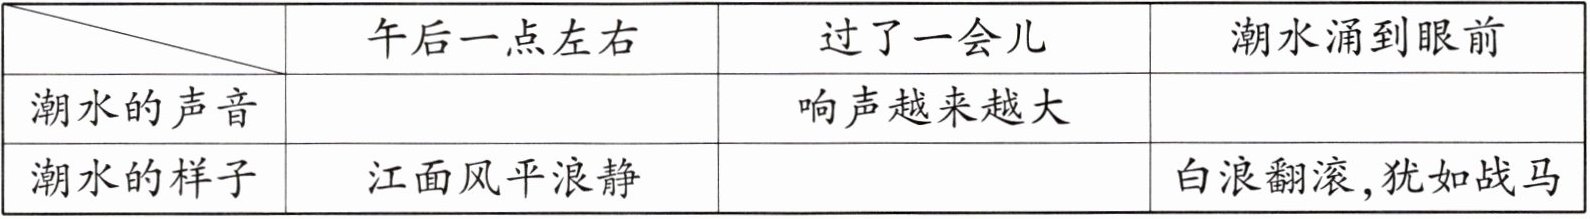 午后一点左右 过了一会儿 潮水涌到眼前
潮水的声音 响声越来越大
潮水的样子 江面风平浪静 白浪翻滚,犹如战马